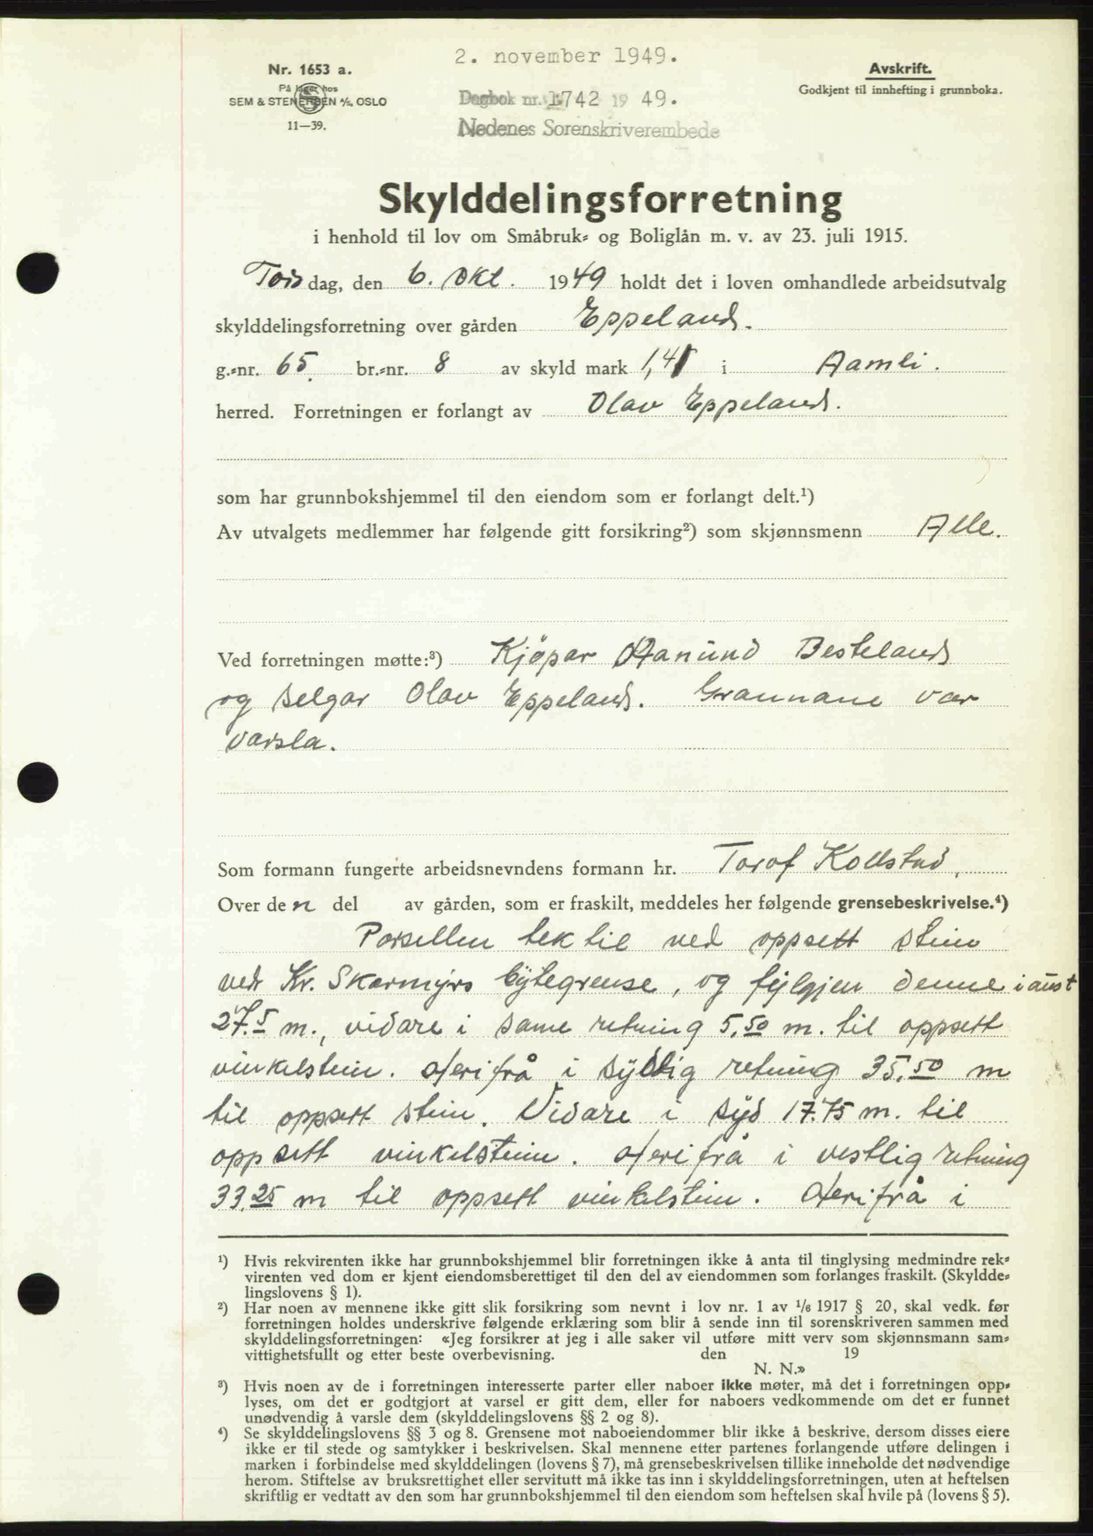 2. november 1949.
Nr. 1653 a.
På lager hos
SEM & STENERSEN A/S, OSLO
11—39.
Dagbok nr. 1742 19 49.
Nedenes Sorenskriverembede
Avskrift.
Godkjent til innhefting i grunnboka.
Skylddelingsforretning
i henhold til lov om Småbruk- og Boliglån m. v. av 23. juli 1915.
Torsdag, den 6. Okt. 1949 holdt det i loven omhandlede arbeidsutvalg
skylddelingsforretning over gården Eppeland.
g.-nr. 65. br.-nr. 8 av skyld mark 1,41 i Aamli.
herred. Forretningen er forlangt av Olav Eppeland.
som har grunnbokshjemmel til den eiendom som er forlangt delt.¹)
Av utvalgets medlemmer har følgende gitt forsikring²) som skjønnsmenn Alle.
Ved forretningen møtte:³) Kjöpar Aanund Besteland
og selgar Olav Eppeland. Grannane var
varsla.
Som formann fungerte arbeidsnevndens formann hr. Torof Kollstad,
Over den del av gården, som er fraskilt, meddeles her følgende grensebeskrivelse.⁴)
Parsellen tek til ved oppsett stein
ved Kr. Skarmyrs bytegrense, og fylgjer denne i aust
27.5 m., vidare i same retning 5.50 m. til oppsett
vinkelstein. Herifrå i sydlig retning 35.50 m
til oppsett stein. Vidare i syd 17.75 m. til
oppsett vinkelstein. Herifrå i vestlig retning
33.25 m til oppsett vinkelstein. Herifrå i
¹) Hvis rekvirenten ikke har grunnbokshjemmel blir forretningen ikke å anta til tinglysing medmindre rek-
virenten ved dom er kjent eiendomsberettiget til den del av eiendommen som forlanges fraskilt. (Skyldde-
lingslovens § 1).
²) Har noen av mennene ikke gitt slik forsikring som nevnt i lov nr. 1 av 1/6 1917 § 20, skal vedk. før
forretningen holdes underskrive følgende erklæring som blir å sende inn til sorenskriveren sammen med
skylddelingsforretningen: «Jeg forsikrer at jeg i alle saker vil utføre mitt verv som skjønnsmann sam-
vittighetsfullt og etter beste overbevisning. den 19
N. N.»
³) Hvis noen av de i forretningen interesserte parter eller naboer ikke møter, må det i forretningen opp-
lyses, om det er godtgjort at varsel er gitt dem, eller for naboers vedkommende om det er funnet
unødvendig å varsle dem (skylddelingslovens §§ 2 og 8).
⁴) Se skylddelingslovens §§ 3 og 8. Grensene mot naboeiendommer blir ikke å beskrive, dersom disses eiere
ikke er til stede og samtykker i beskrivelsen. Skal mennene etter partenes forlangende utføre delingen i
marken i forbindelse med skylddelingen (lovens § 7), må grensebeskrivelsen tillike inneholde det nødvendige
herom. Stiftelse av bruksrettighet eller servitutt må ikke tas inn i skylddelingsforretningen, uten at heftelsen
skriftlig er vedtatt av den som har grunnbokshjemmel til den eiendom som heftelsen skal hvile på (lovens § 5).